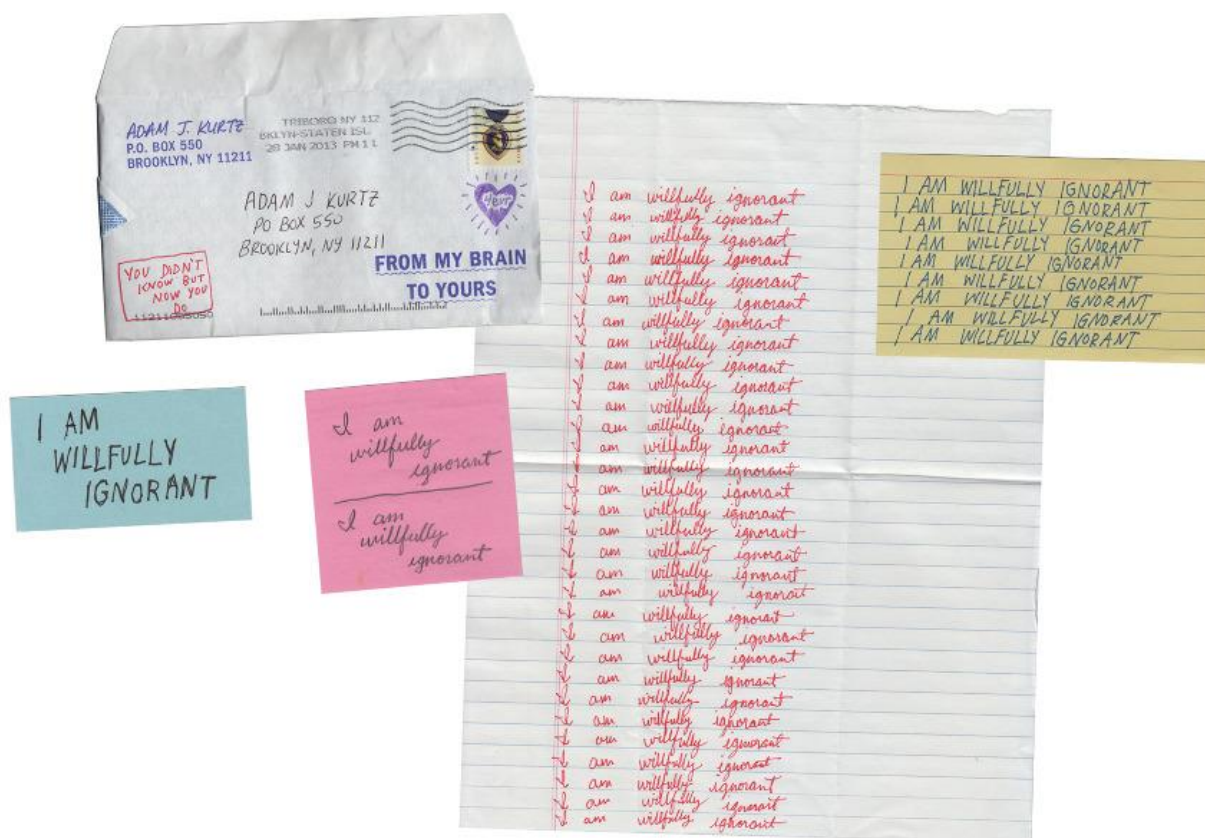 ADAM J. KURTZ
P.O. BOX 550
BROOKLYN, NY 11211
TRIBORO NY 112
BKLYN-STATEN ISL
28 JAN 2013 PM 1 L
ADAM J KURTZ
PO BOX 550
BROOKLYN, NY 11211
FROM MY BRAIN
TO YOURS
YOU DIDN'T
KNOW BUT
NOW YOU
DO
I AM
WILLFULLY
IGNORANT
I am
willfully
ignorant
I am
willfully
ignorant
I am willfully ignorant
I am willfully ignorant
I am willfully ignorant
I am willfully ignorant
I am willfully ignorant
I am willfully ignorant
I am willfully ignorant
I am willfully ignorant
I am willfully ignorant
I am willfully ignorant
I am willfully ignorant
I am willfully ignorant
I am willfully ignorant
I am willfully ignorant
I am willfully ignorant
I am willfully ignorant
I am willfully ignorant
I am willfully ignorant
I am willfully ignorant
I am willfully ignorant
I am willfully ignorant
I am willfully ignorant
I am willfully ignorant
I am willfully ignorant
I am willfully ignorant
I am willfully ignorant
I am willfully ignorant
I am willfully ignorant
I am willfully ignorant
I am willfully ignorant
I am willfully ignorant
I AM WILLFULLY IGNORANT
I AM WILLFULLY IGNORANT
I AM WILLFULLY IGNORANT
I AM WILLFULLY IGNORANT
I AM WILLFULLY IGNORANT
I AM WILLFULLY IGNORANT
I AM WILLFULLY IGNORANT
I AM WILLFULLY IGNORANT
I AM WILLFULLY IGNORANT